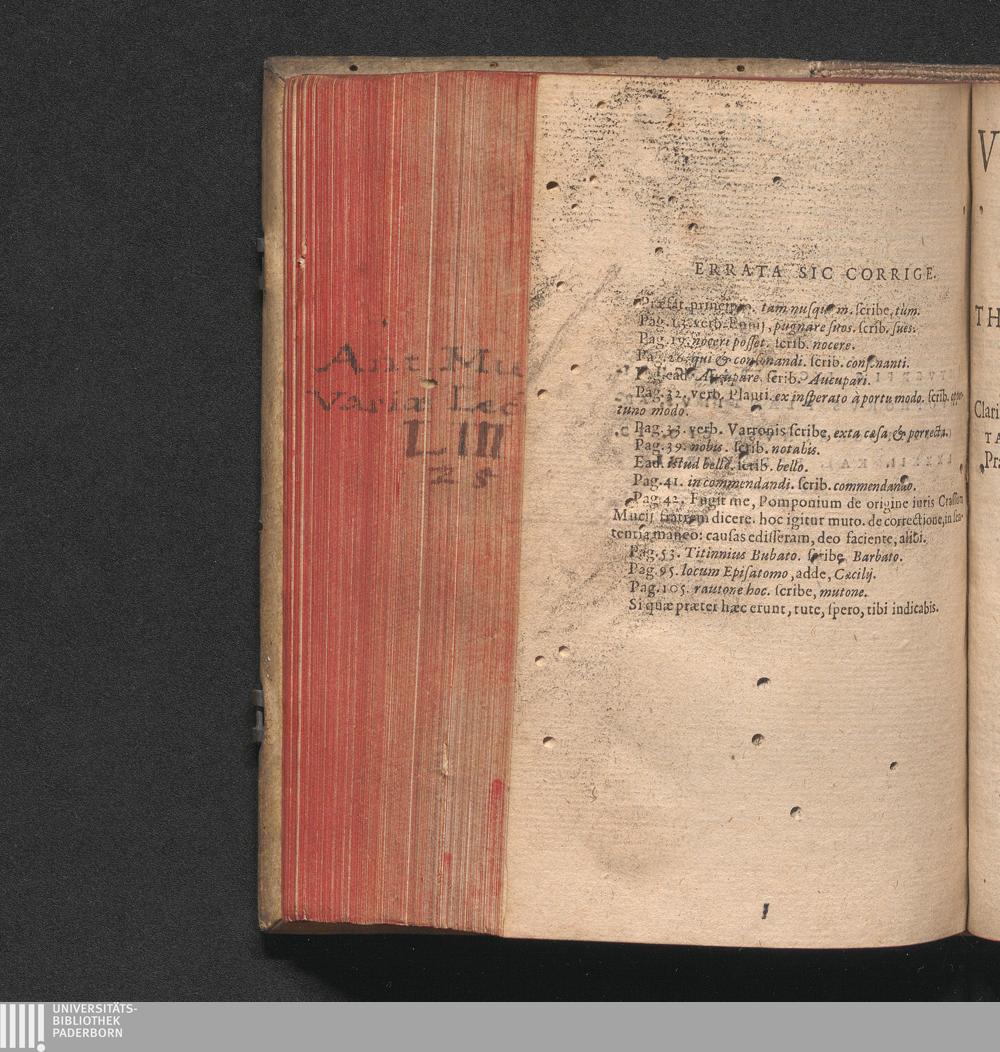 Ant Mu
Varia Lec
LIII
25
ERRATA SIC CORRIGE.
Præfat. principio. tam nuſquam. ſcribe, tùm.
Pag. 13. verb. Ennij, pugnare ſuos. ſcrib. ſues.
Pag. 19. noceri poſſet. ſcrib. nocere.
Pag. 26. qui & conſonandi. ſcrib. conſonanti.
Ead. Aucupare ſcrib. Aucupari.
Pag. 32. verb. Plauti. ex inſperato à portu modo. ſcrib. oppor-
tuno modo.
Pag. 33. verb. Varronis ſcribe, exta cæſa, & porrecta.
Pag. 39. nobis. ſcrib. notabis.
Ead. istud belle. ſcrib. bello.
Pag. 41. in commendandi. ſcrib. commendando.
Pag. 42. Fugit me, Pomponium de origine iuris Craſſum
Mucij fratrem dicere. hoc igitur muto. de correctione, in ſen-
tentia maneo: cauſas ediſſeram, deo faciente, alibi.
Pag. 53. Titinnius Bubato. ſcribe Barbato.
Pag. 95. locum Epiſatomo, adde, Cæcilij.
Pag. 105. rautone hoc. ſcribe, mutone.
Si quæ præter hæc erunt, tute, ſpero, tibi indicabis.
V
TH
Clari
TA
Pra
UNIVERSITÄTS-
BIBLIOTHEK
PADERBORN